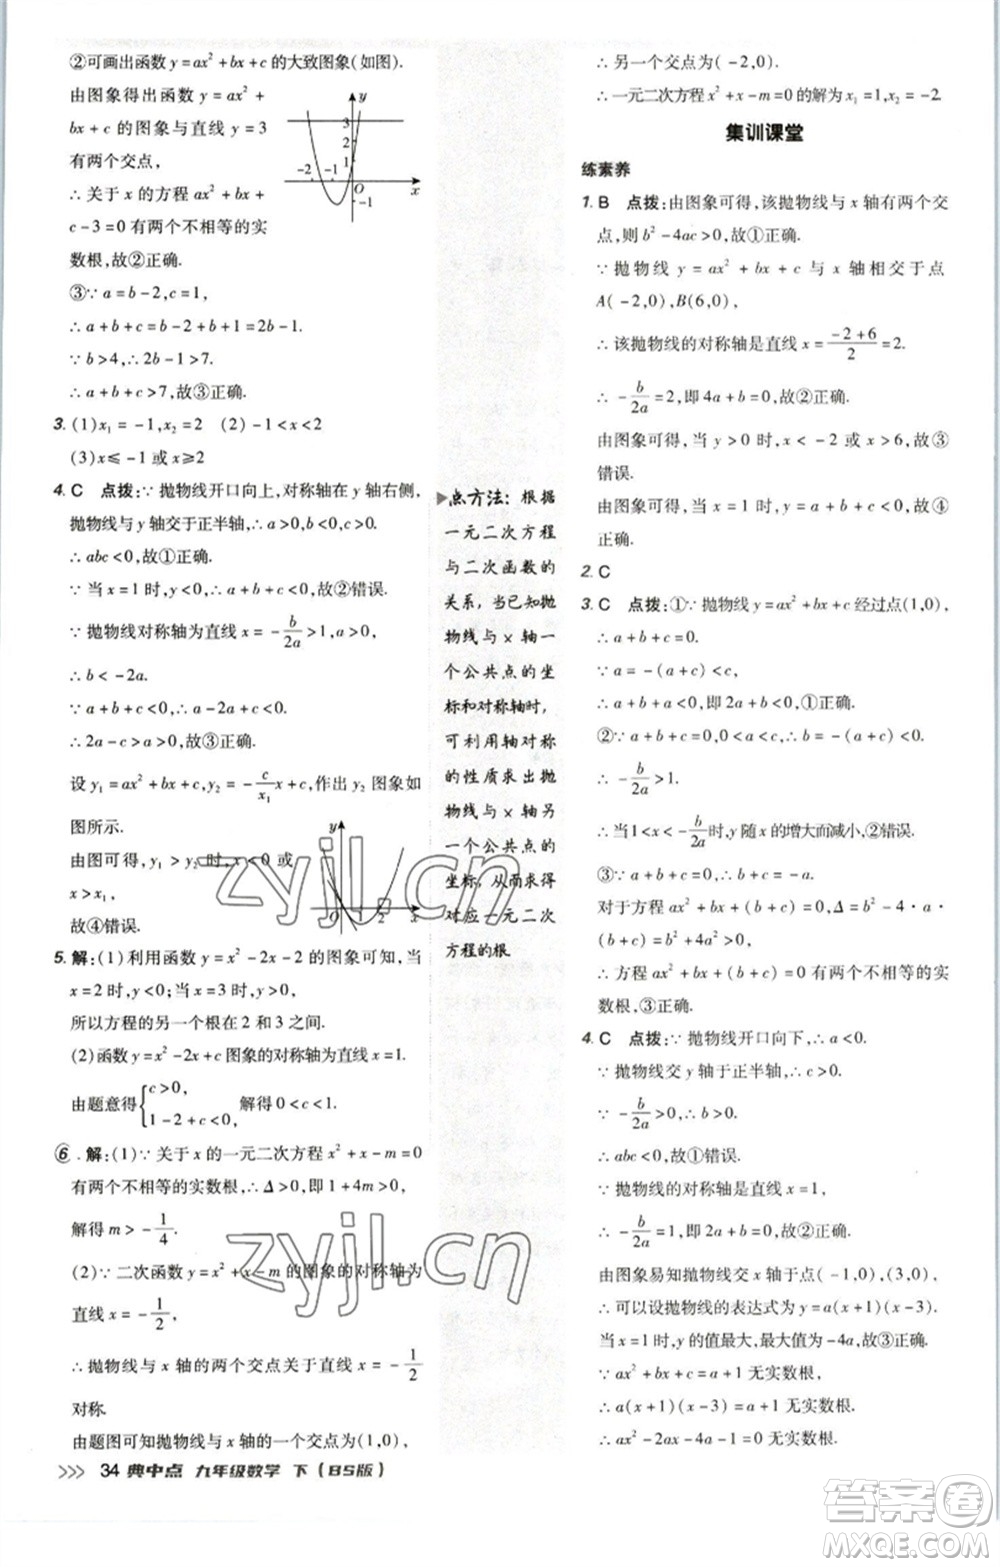 ②可画出函数 y=ax²+bx+c 的大致图象(如图).
由图象得出函数 y=ax²+
bx+c 的图象与直线 y=3
有两个交点,
∴关于 x 的方程 ax²+bx
+c-3=0 有两个不相等的实
数根,故②正确.
③∵a=b-2,c=1,
∴a+b+c=b-2+b+1=2b-1.
∵b>4,∴2b-1>7.
∴a+b+c>7,故③正确.
y
3
2
1
-2
-1
O
x
-1
3. (1)x₁=-1,x₂=2 (2)-1<x<2
(3)x≤-1或x≥2
4. C 点拨:∵抛物线开口向上,对称轴在 y 轴右侧,
抛物线与 y 轴交于正半轴,∴a>0,b<0,c>0.
∴abc<0,故①正确.
∵当 x=1 时,y<0,∴a+b+c<0,故②错误.
∵抛物线对称轴为直线 x=-b/2a>1,a>0,
∴b<-2a.
∵a+b+c<0,∴a-2a+c
∴2a-c>0,故③正确.
设 y₁=ax²+bx+c,y₂=-c/x₁ x+c,作出 y₂ 图象如
图所示.
由图可得,y₁>y₂时,x<0 或
x>x₁,
故④错误.
y
O
1
2
x
5. 解:(1)利用函数 y=x²-2x-2 的图象可知,当
x=2 时,y<0;当 x=3 时,y>0,
所以方程的另一个根在 2 和 3 之间.
(2)函数 y=x²-2x+c 图象的对称轴为直线 x=1.
由题意得{c>0, 1-2+c<0, 解得 0<c<1.
⑥.解:(1)∵关于 x 的一元二次方程 x²+x-m=0
有两个不相等的实数根,∴Δ>0,即 1+4m>0,
解得 m>-1/4.
(2)∵二次函数 y=x²+x-m 的图象的对称轴为
直线 x=-1/2,
∴抛物线与 x 轴的两个交点关于直线 x=-1/2
对称.
由题图可知抛物线与 x 轴的一个交点为(1,0),
点方法:根据
一元二次方程
与二次函数的
关系,当已知抛
物线与 x 轴一
个公共点的坐
标和对称轴时,
可利用轴对称
的性质求出抛
物线与 x 轴另
一个公共点的
坐标,从而求得
对应一元二次
方程的根.
∴另一个交点为(-2,0).
∴一元二次方程 x²+x-m=0 的解为 x₁=1,x₂=-2.
集训课堂
练素养
1. B 点拨:由图象可得,该抛物线与 x 轴有两个交
点,则 b²-4ac>0,故①正确.
∵抛物线 y=ax²+bx+c 与 x 轴相交于点
A(-2,0),B(6,0),
∴该抛物线的对称轴是直线 x=(-2+6)/2=2.
∴-b/2a=2,即 4a+b=0,故②正确.
由图象可得,当 y>0 时,x<-2 或 x>6,故③
错误.
由图象可得,当 x=1 时,y=a+b+c<0,故④
正确.
2. C
3. C 点拨:①∵抛物线 y=ax²+bx+c 经过点(1,0),
∴a+b+c=0.
∵a<c,∴b=-(a+c)
∴a+c>0,即 2a+b<0,①正确.
②∵a+b+c=0,0<a<c,
∴-b/2a>1.
∴当1<x<-b/2a时,y 随 x 的增大而减小,②错误.
③∵a+b+c=0,∴b+c=-a.
对于方程 ax²+bx+(b+c)=0,Δ=b²-4·a·
(b+c)=b²+4a²>0,
∴方程 ax²+bx+(b+c)=0 有两个不相等的实
数根,③正确.
4. C 点拨:∵抛物线开口向下,∴a<0.
∵抛物线交 y 轴于正半轴,∴c>0.
∵-b/2a>0,∴b>0.
∴abc<0,故①错误.
∵抛物线的对称轴是直线 x=1,
∴-b/2a=1,即 2a+b=0,故②正确.
由图象易知抛物线交 x 轴于点(-1,0),(3,0),
∴可以设抛物线的表达式为 y=a(x+1)(x-3).
当 x=1 时,y 的值最大,最大值为-4a,故③正确.
∵ax²+bx+c=a+1 无实数根,
∴a(x+1)(x-3)=a+1 无实数根.
34 典中点 九年级数学 下(BS版)
zyjl.cn
zyjl.cn
答案圈
MXQE.COM